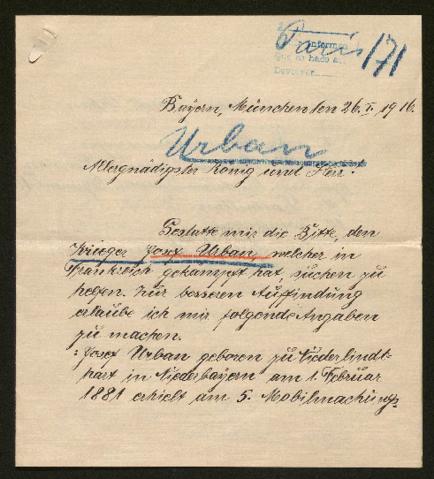 Paris 171
Informes
que se hace a
Devolver
Bayern, München den 26. I. 1916.
Urban
Allergnädigster König und Herr!
Gestatte mir die Bitte, den
Krieger Josef Urban, welcher in
Frankreich gekämpft hat, suchen zu
helfen. Zur besseren Auffindung
erlaube ich mir folgende Angaben
zu machen.
: Josef Urban geboren zu Niederlindt-
hart in Niederbayern am 1. Februar
1881 erhielt am 5. Mobilmachungs-